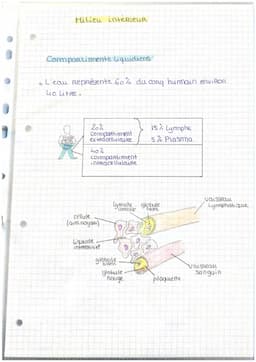 Milieu interieur
Compartiments liquidiens
L'eau représente 60% du corp humain environ
40 Litre.
20%
compartiment
extracellulaire
15% Lymphe
5% Plasma
40%
compartiment
intracellulaire
vaisseau
Lymphatique
lymphe
globule
blanc
cellule
Liquide
interstitiel
globule
blanc
globule
rouge
plaquette
vaisseau
sanguin